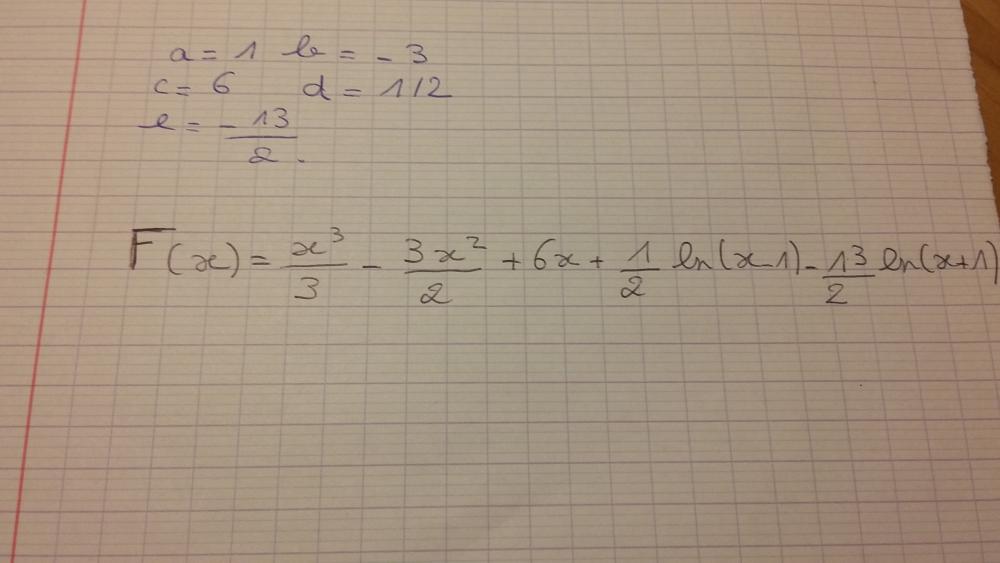 a = 1 b = - 3
c = 6 d = 1/2
e = - 13/2.
F(x) = x³/3 - 3x²/2 + 6x + 1/2 ln(x-1) - 13/2 ln(x+1)